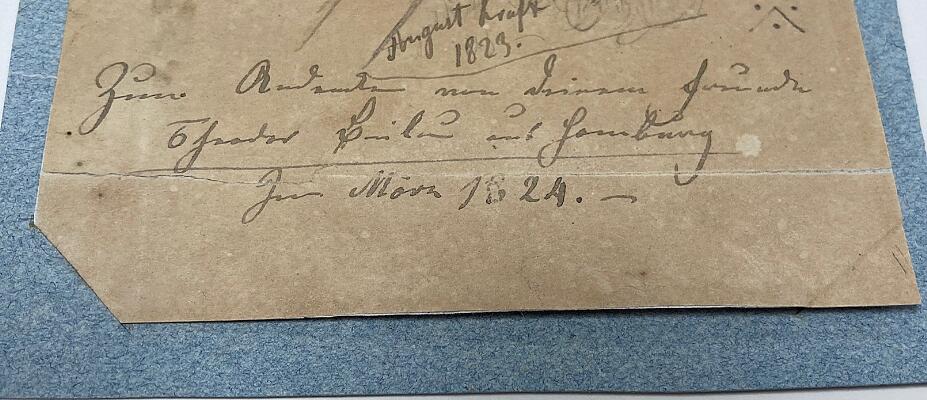 August Kraft
1823.
Zum Andenken von Deinem Freunde
Theodor aus Hamburg
Im März 1824. —